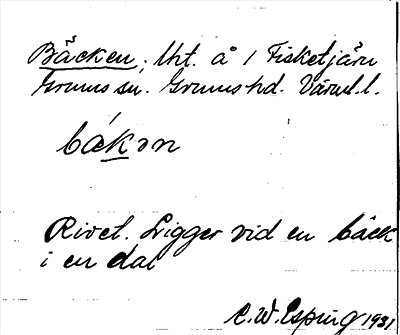 Bäcken, lht. å 1 Fisketjärn
Grums sn. Grums hd. Värml. l.
bækɔn
Rivet. Ligger vid en bäck
i en dal
C.W. Esping 1931.